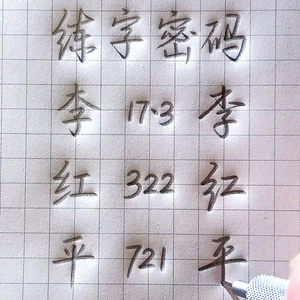 练字密码
李 17·3 李
红 322 红
平 721 平